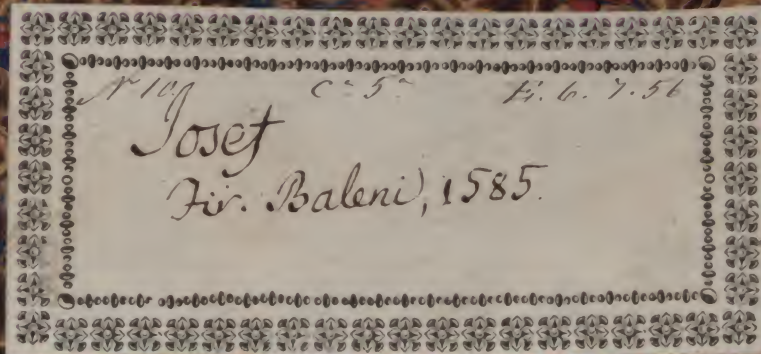 Nº 10. Cª 5ª E. 6. 7. 56
Josef
Fir. Baleni, 1585.